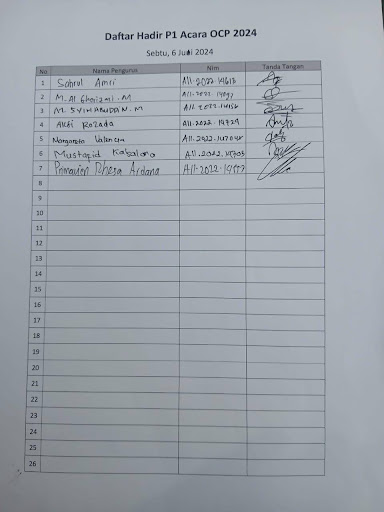 Daftar Hadir P1 Acara OCP 2024
Sebtu, 6 Juli 2024
No Nama Pengurus Nim Tanda Tangan
1 Sahrul Amri A11.2022.14618
2 M. Al Ghoizmi. M A11.2022.
3 M. SYIHABUDDIN. M A11.2022.
4 Aldi Rozada A11.2022.14729
5 Margareta Valencia A11.2022.
6 Mustafid Kalsalana A11.2022.14703
7 Primavien Rhesa Ardana A11.2022.
8
9
10
11
12
13
14
15
16
17
18
19
20
21
22
23
24
25
26